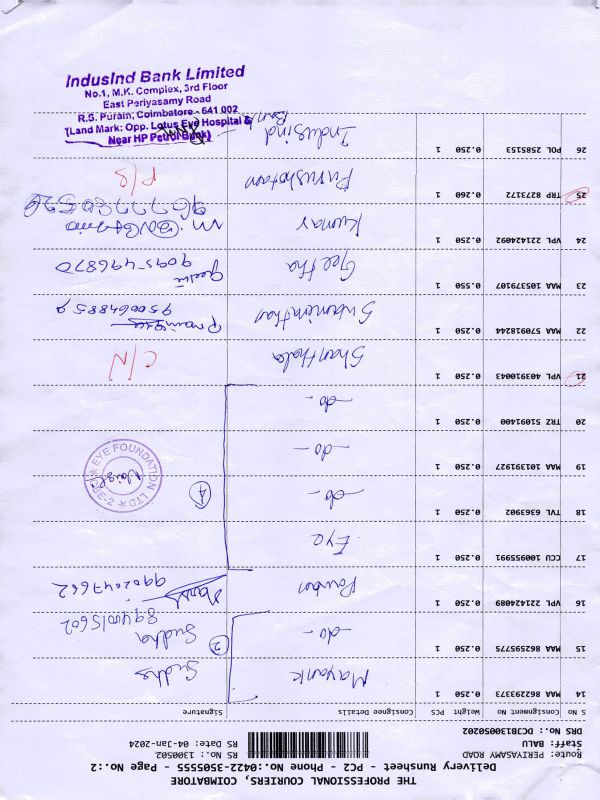 THE PROFESSIONAL COURIERS, COIMBATORE
Delivery Runsheet - PC2 - Phone No.:0422-3505555 - Page No.:2
Route: PERIYASAMY ROAD RS No.: 1300502
Staff: BALU RS Date: 04-Jan-2024
DRS No.: DCJB1300502O2
S No Consignment No Weight PCS Consignee Details Signature
14 MAA 862293373 0.250 1 Mayank Sudha
15 MAA 862595775 0.250 1 -do- 2 Sudha
16 VPL 221424089 0.250 1
17 CCU 100955991 0.250 1 Eye
18 TVL 6363902 0.250 1 -do- 4
19 MAA 101391927 0.250 1 -do-
EYE FOUNDATION LTD
20 TRZ 51091400 0.250 1 -do-
21 VPL 403910043 0.250 1 Shanthala C/N
22 MAA 57018244 0.250 1
23 MAA 105379107 0.550 1 Geetha Geetha
9095496870
24 VPL 221424092 0.250 1 Kumar
25 TRP 8273172 0.260 1 Purushotam P/S
26 POL 2585153 0.250 1 Indusind Bank
IndusInd Bank Limited
No.1, M.K. Complex, 3rd Floor
East Periyasamy Road
R.S. Puram, Coimbatore - 641 002
(Land Mark: Opp. Lotus Eye Hospital &
Near HP Petrol Bunk)